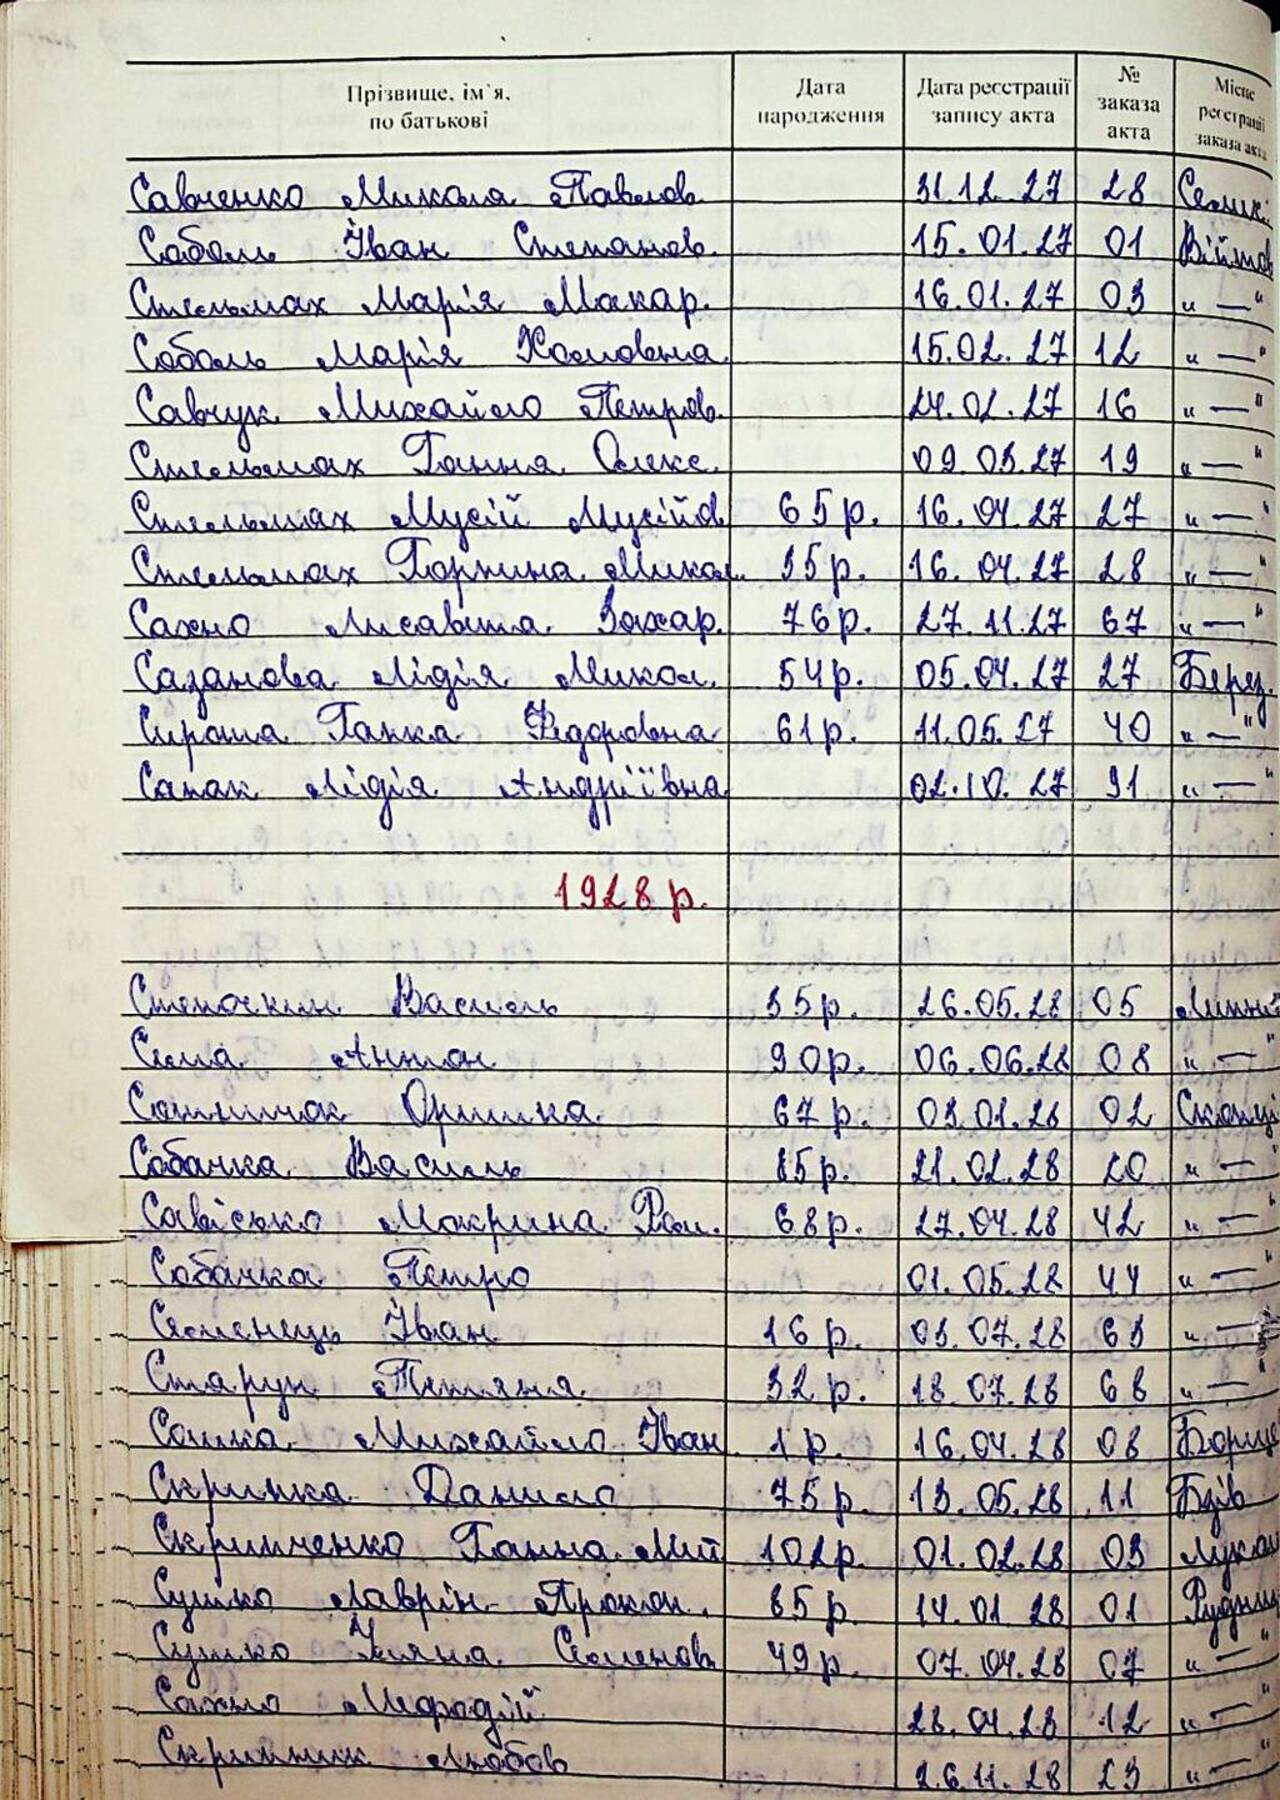 Прізвище, ім`я, по батькові Дата народження Дата реєстрації запису акта № заказа акта Місце реєстрації заказа акта
Савченко Микола Павлов. 31.12.27 28 Семик.
Соболь Іван Степанов. 15.01.27 01 Війтов
Стельмах Марія Макар. 16.01.27 03 „ — "
Соболь Марія Хомовна 15.02.27 12 „ — "
Савчук Михайло Петров. 24.02.27 16 „ — "
Стельмах Ганна Олекс. 09.03.27 19 „ — "
Стельмах Мусій Мусійов 65р. 16.04.27 27 „ — "
Стельмах Горпина Микол. 35р. 16.04.27 28 „ — "
Сахно Лисавета Захар. 76р. 27.11.27 67 „ — "
Сазанова Лідія Микол. 54р. 05.04.27 27 Берез.
Сирота Ганка Федоровна 61р. 11.05.27 40 „ — "
Сапак Лідія Андріївна 02.10.27 91 „ — "
1928 р.
Василь 35р. 26.05.28 05
Сема Антон 90р. 06.06.28 08 „ — "
Сотничок Оришка 67 р. 03.01.28 02 Скопці
Собачка Василь 85р. 21.02.28 20 „ — "
Савісько Мокрина Ром. 68р. 27.04.28 42 „ — "
Собачка Петро 01.05.28 44 „ — "
Семенець Іван 16 р. 03.07.28 63 „ — "
Старун Тетяна 32 р. 18.07.28 68 „ — "
Сошка Михайло Іван 1 р. 16.04.28 08 Борще
Скрипка Данило 75р. 13.05.28 11 Бзів
Скрипченко Ганна Мит 102р. 01.02.28 03 Лукаш
Сушко Лаврін Прокоп. 85 р. 14.01.28 01 Рудниц
Сушко Уляна Семеновн 49р. 07.04.28 07 „ — "
Сахно Мефодій 28.04.28 12 „ — "
Скрипник Любов 26.11.28 23 „ — "